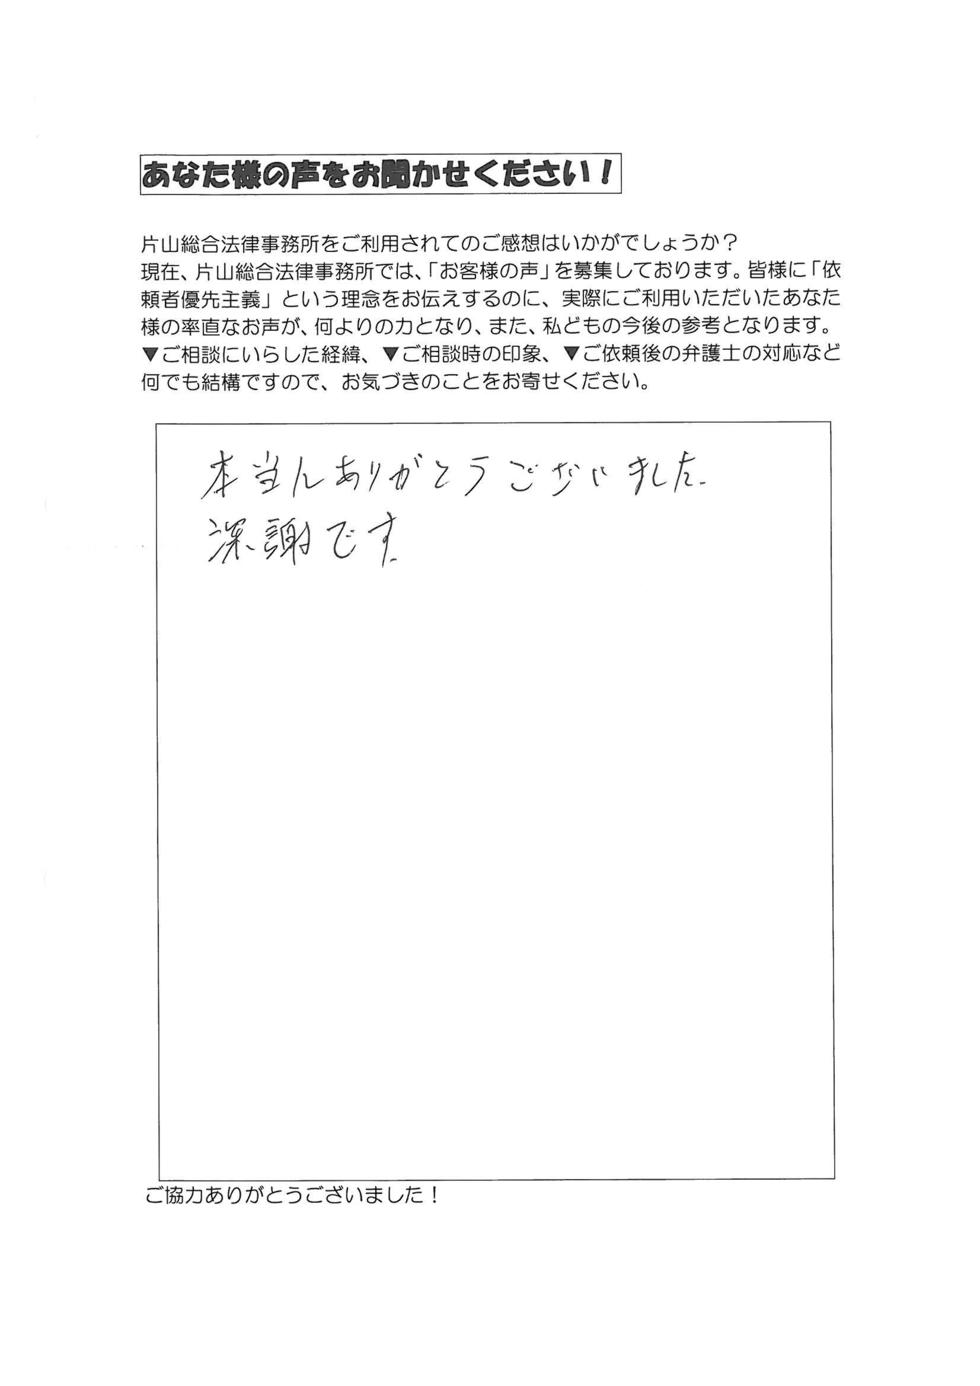 あなた様の声をお聞かせください！
片山総合法律事務所をご利用されてのご感想はいかがでしょうか？
現在、片山総合法律事務所では、「お客様の声」を募集しております。皆様に「依
頼者優先主義」という理念をお伝えするのに、実際にご利用いただいたあなた
様の率直なお声が、何よりの力となり、また、私どもの今後の参考となります。
▼ご相談にいらした経緯、▼ご相談時の印象、▼ご依頼後の弁護士の対応など
何でも結構ですので、お気づきのことをお寄せください。
本当にありがとうございました.
深謝です.
ご協力ありがとうございました！